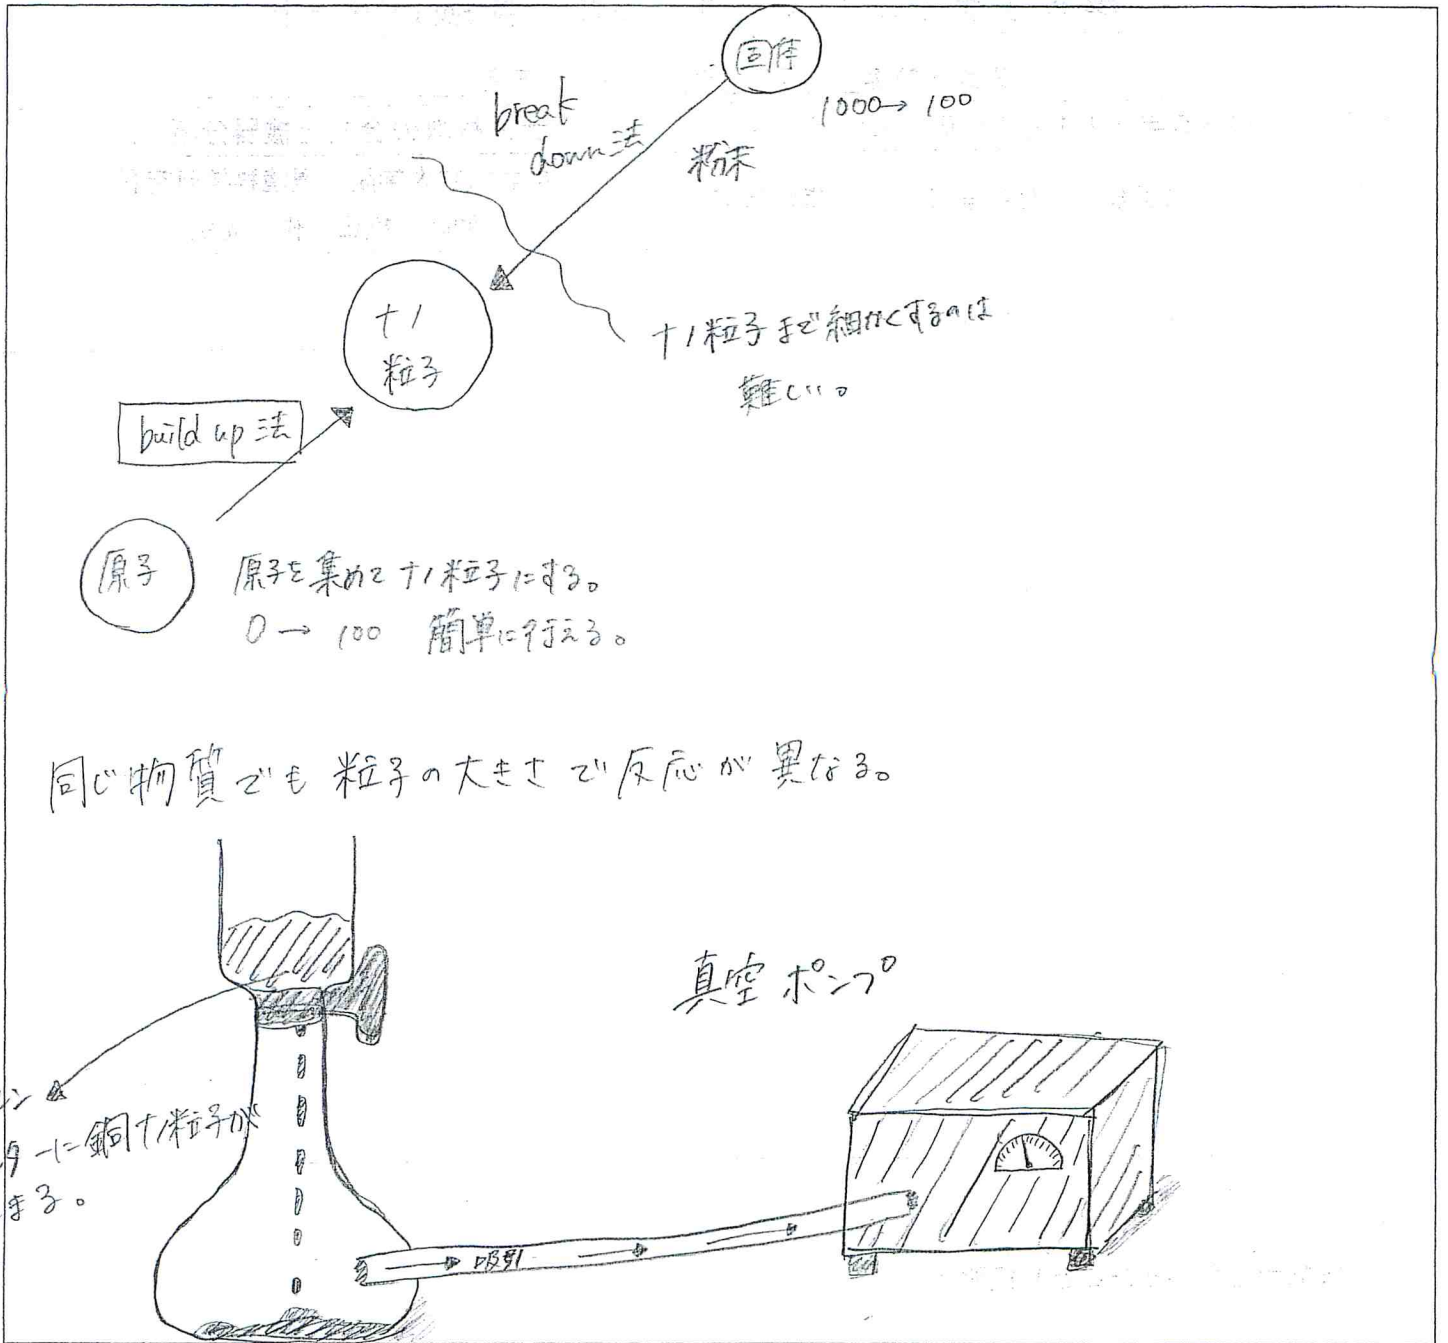 固体
1000→100
break
down法
粉末
ナノ
粒子
ナノ粒子まで細かくするのは
難しい。
build up法
原子
原子を集めてナノ粒子にする。
0→100 簡単に行える。
同じ物質でも粒子の大きさで反応が異なる。
真空ポンプ
ン
ターに銅ナノ粒子が
まる。
吸引